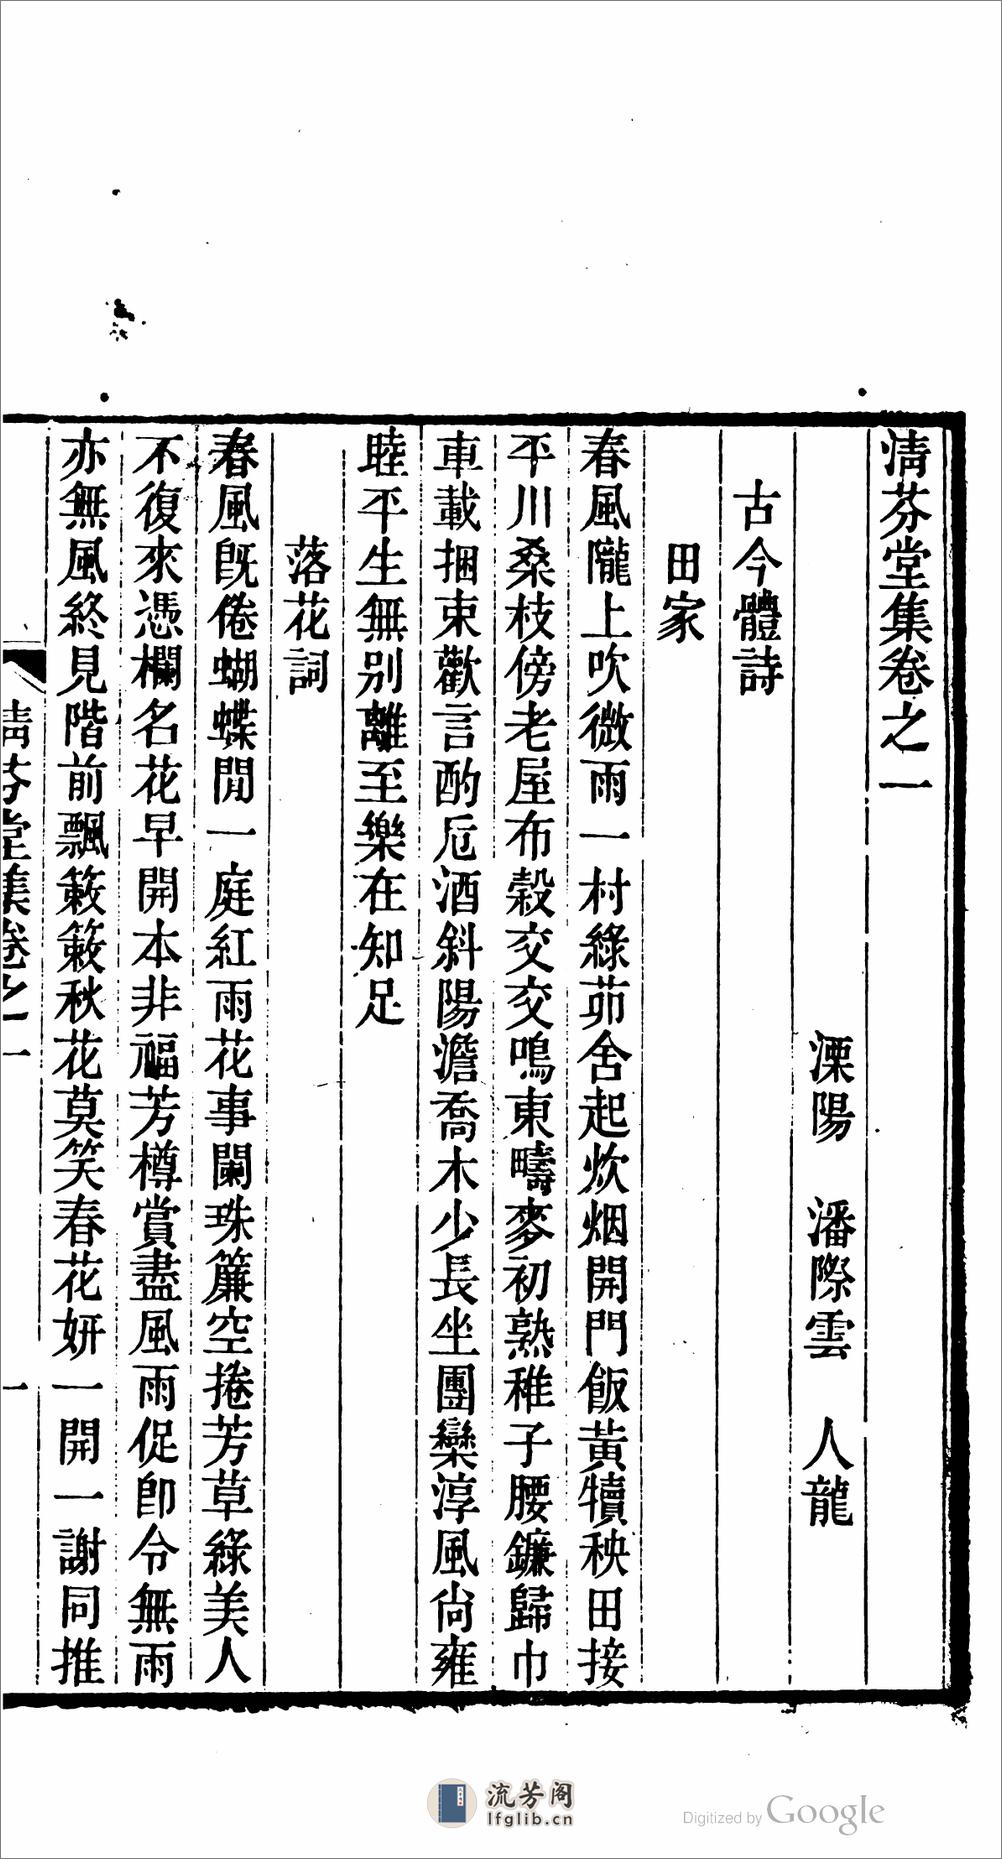 清芬堂集卷之一
溧陽 潘際雲 人龍
古今體詩
田家
春風隴上吹微雨一村綠茆舍起炊烟開門飯黃犢秧田接
平川桑枝傍老屋布穀交交鳴東疇麥初熟稚子腰鐮歸巾
車載捆束歡言酌卮酒斜陽澹喬木少長坐團欒淳風尚雍
睦平生無別離至樂在知足
落花詞
春風旣倦蝴蝶閒一庭紅雨花事闌珠簾空捲芳草綠美人
不復來憑欄名花早開本非福芳樽賞盡風雨促卽令無雨
亦無風終見階前飄簌簌秋花莫笑春花妍一開一謝同推
清芬堂集卷之一
一
流芳阁
lfglib.cn
Digitized by Google